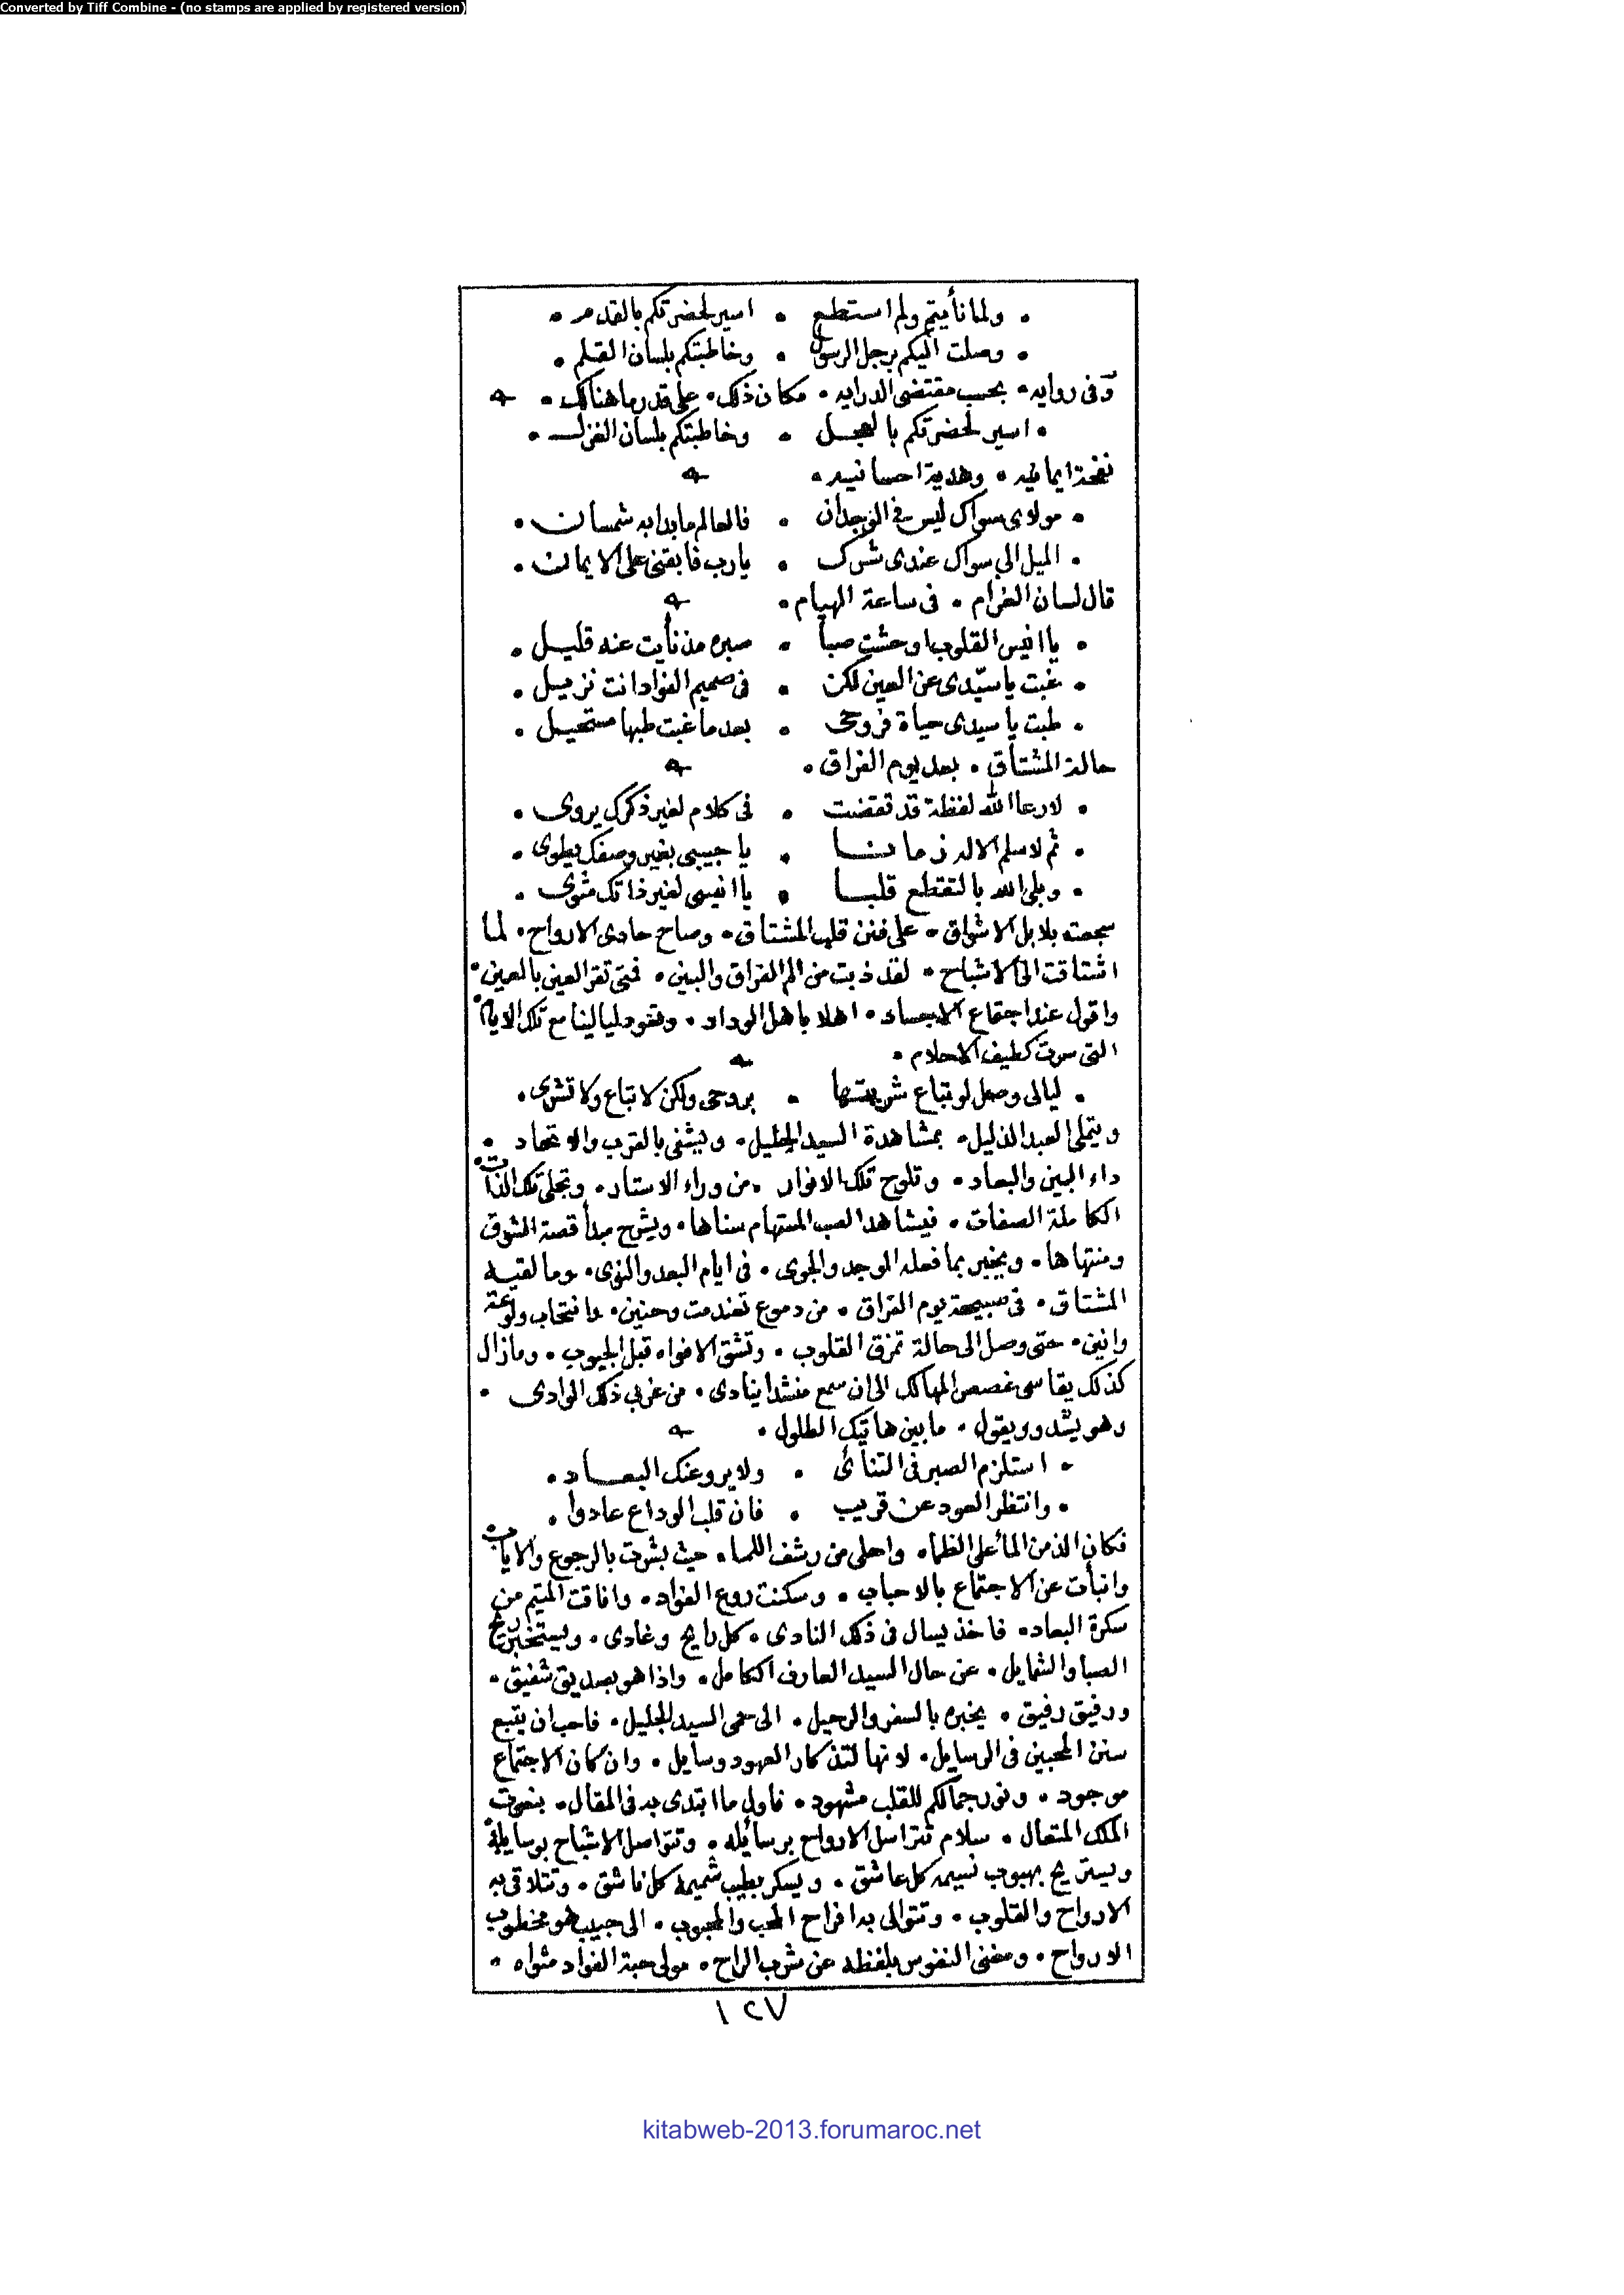 Converted by Tiff Combine - (no stamps are applied by registered version)
• ولما نأيتم ولم استطع • اسير لحضرتكم بالقدم •
• وصلت اليكم برجل الرسول • وخاطبتكم بلسان القلم •
وفى روايه • بحسب مقتضى الدرايه • مكان ذلك • على قدر ما هنالك •
• اسير لحضرتكم بالعجل • وخاطبتكم بلسان الغزل •
نفحة ايمانيه • وهدية احسانيه •
• مولاى سواك ليس فى الوجدان • فالعالم ما بدا به شمسان •
• الميل الى سواك عندى شرك • يارب فابقنى على الايمان •
قال لسان الغرام • فى ساعة الهيام •
• يا انيس القلوب اوحشت صبا • صبره مذ نأيت عنه قليل •
• غبت يا سيّدى عن العين لكن • فى صميم الفواد انت نزيل •
• طبت يا سيدى حياة فروحى • بعد ما غبت طبها مستحيل •
حالة المشتاق • بعد يوم الفراق •
• لا رعا الله لفظة قد تقضت • فى كلام لغير ذكرك يروى •
• ثم لا سلم الاله زمانا • يا حبيبى بغير وصفك يطوى •
• وبلى الله بالتقطع قلبا • يا انيسى لغير ذاتك مثوى •
سجعت بلابل الاشواق • على فنن قلب المشتاق • وصاح حادى الارواح • لما
اشتاقت الى الاشباح • لقد ذبت من الم الفراق والبين • فمتى تقر العين بالعين •
واقول عند اجتماع الاجساد • اهلا باهل الوداد • وتعود ليالينا مع تلك الايام
التى سرت كطيف الاحلام •
• ليالى وصل لو تباع شريتها • بروحى ولكن لا تباع ولا تشرى •
ويتملى العبد الذليل • بمشاهدة السيد الجليل • ويشفى بالقرب والاتحاد •
داء البين والبعاد • وتلوح تلك الانوار • من وراء الاستار • وتجلى تلك الذات •
الكاملة الصفات • فيشاهد الصب المستهام سناها • ويشرح مبدأ قصة الشوق
ومنتهاها • ويخبر بما فعله الوجد والجوى • فى ايام البعد والنوى • وما لقيه
المشتاق • فى صبيحة يوم الفراق • من دموع وحنين • وانتحاب ولوعة
وانين • حتى وصل الى حالة تمزق القلوب • وتشق الافواه قبل الجيوب • ومازال
كذلك يقاسى غصص المهالك الى ان سمع منشدا ينادى • من غربى ذلك الوادى •
وهو يشدو ويقول • ما بين هاتيك الطلول •
• استلزم الصبر فى التنائى • ولا يروعنك البعاد •
• وانتظر العود عن قريب • فان قلب الوداع عادوا •
فكان الذ من الماء على الظماء • واحلى من رشف اللماء • حيث بشرت بالرجوع والاياب
وانبأت عن الاجتماع بالاحباب • وسكنت روع الفواد • وافاقت المتيم من
سكرة البعاد • فاخذ يسال فى ذلك النادى • كل رايح وغادى • ويستخبر ريح
الصبا والشمايل • عن حال السيد العارف الكامل • واذا هو بصديق شفيق •
ورفيق رفيق • يخبره بالسفر والرحيل • الى حمى السيد الجليل • فاحب ان يتبع
سنن المحبين فى الرسايل • لانها لتذكار العهود وسايل • وان كان الاجتماع
موجود • ونور جمالكم للقلب مشهود • فاول ما ابتدى به فى المقال •
الملك المتعال • سلام تتراسل الارواح برسائله • وتتواصل الاشباح بوسايله
ويستريح بهبوب نسيمه كل عاشق • ويسكر بطيب شميمه كل ناشق • وتتلاقى به
الارواح والقلوب • وتتوالى به افراح المحب والمحبوب • الى حبيب هو مخطوب
الارواح • ومغنى النفوس بلفظه عن شرب الراح • مولى حبة الفواد مثواه •
١٢٧
kitabweb-2013.forumaroc.net